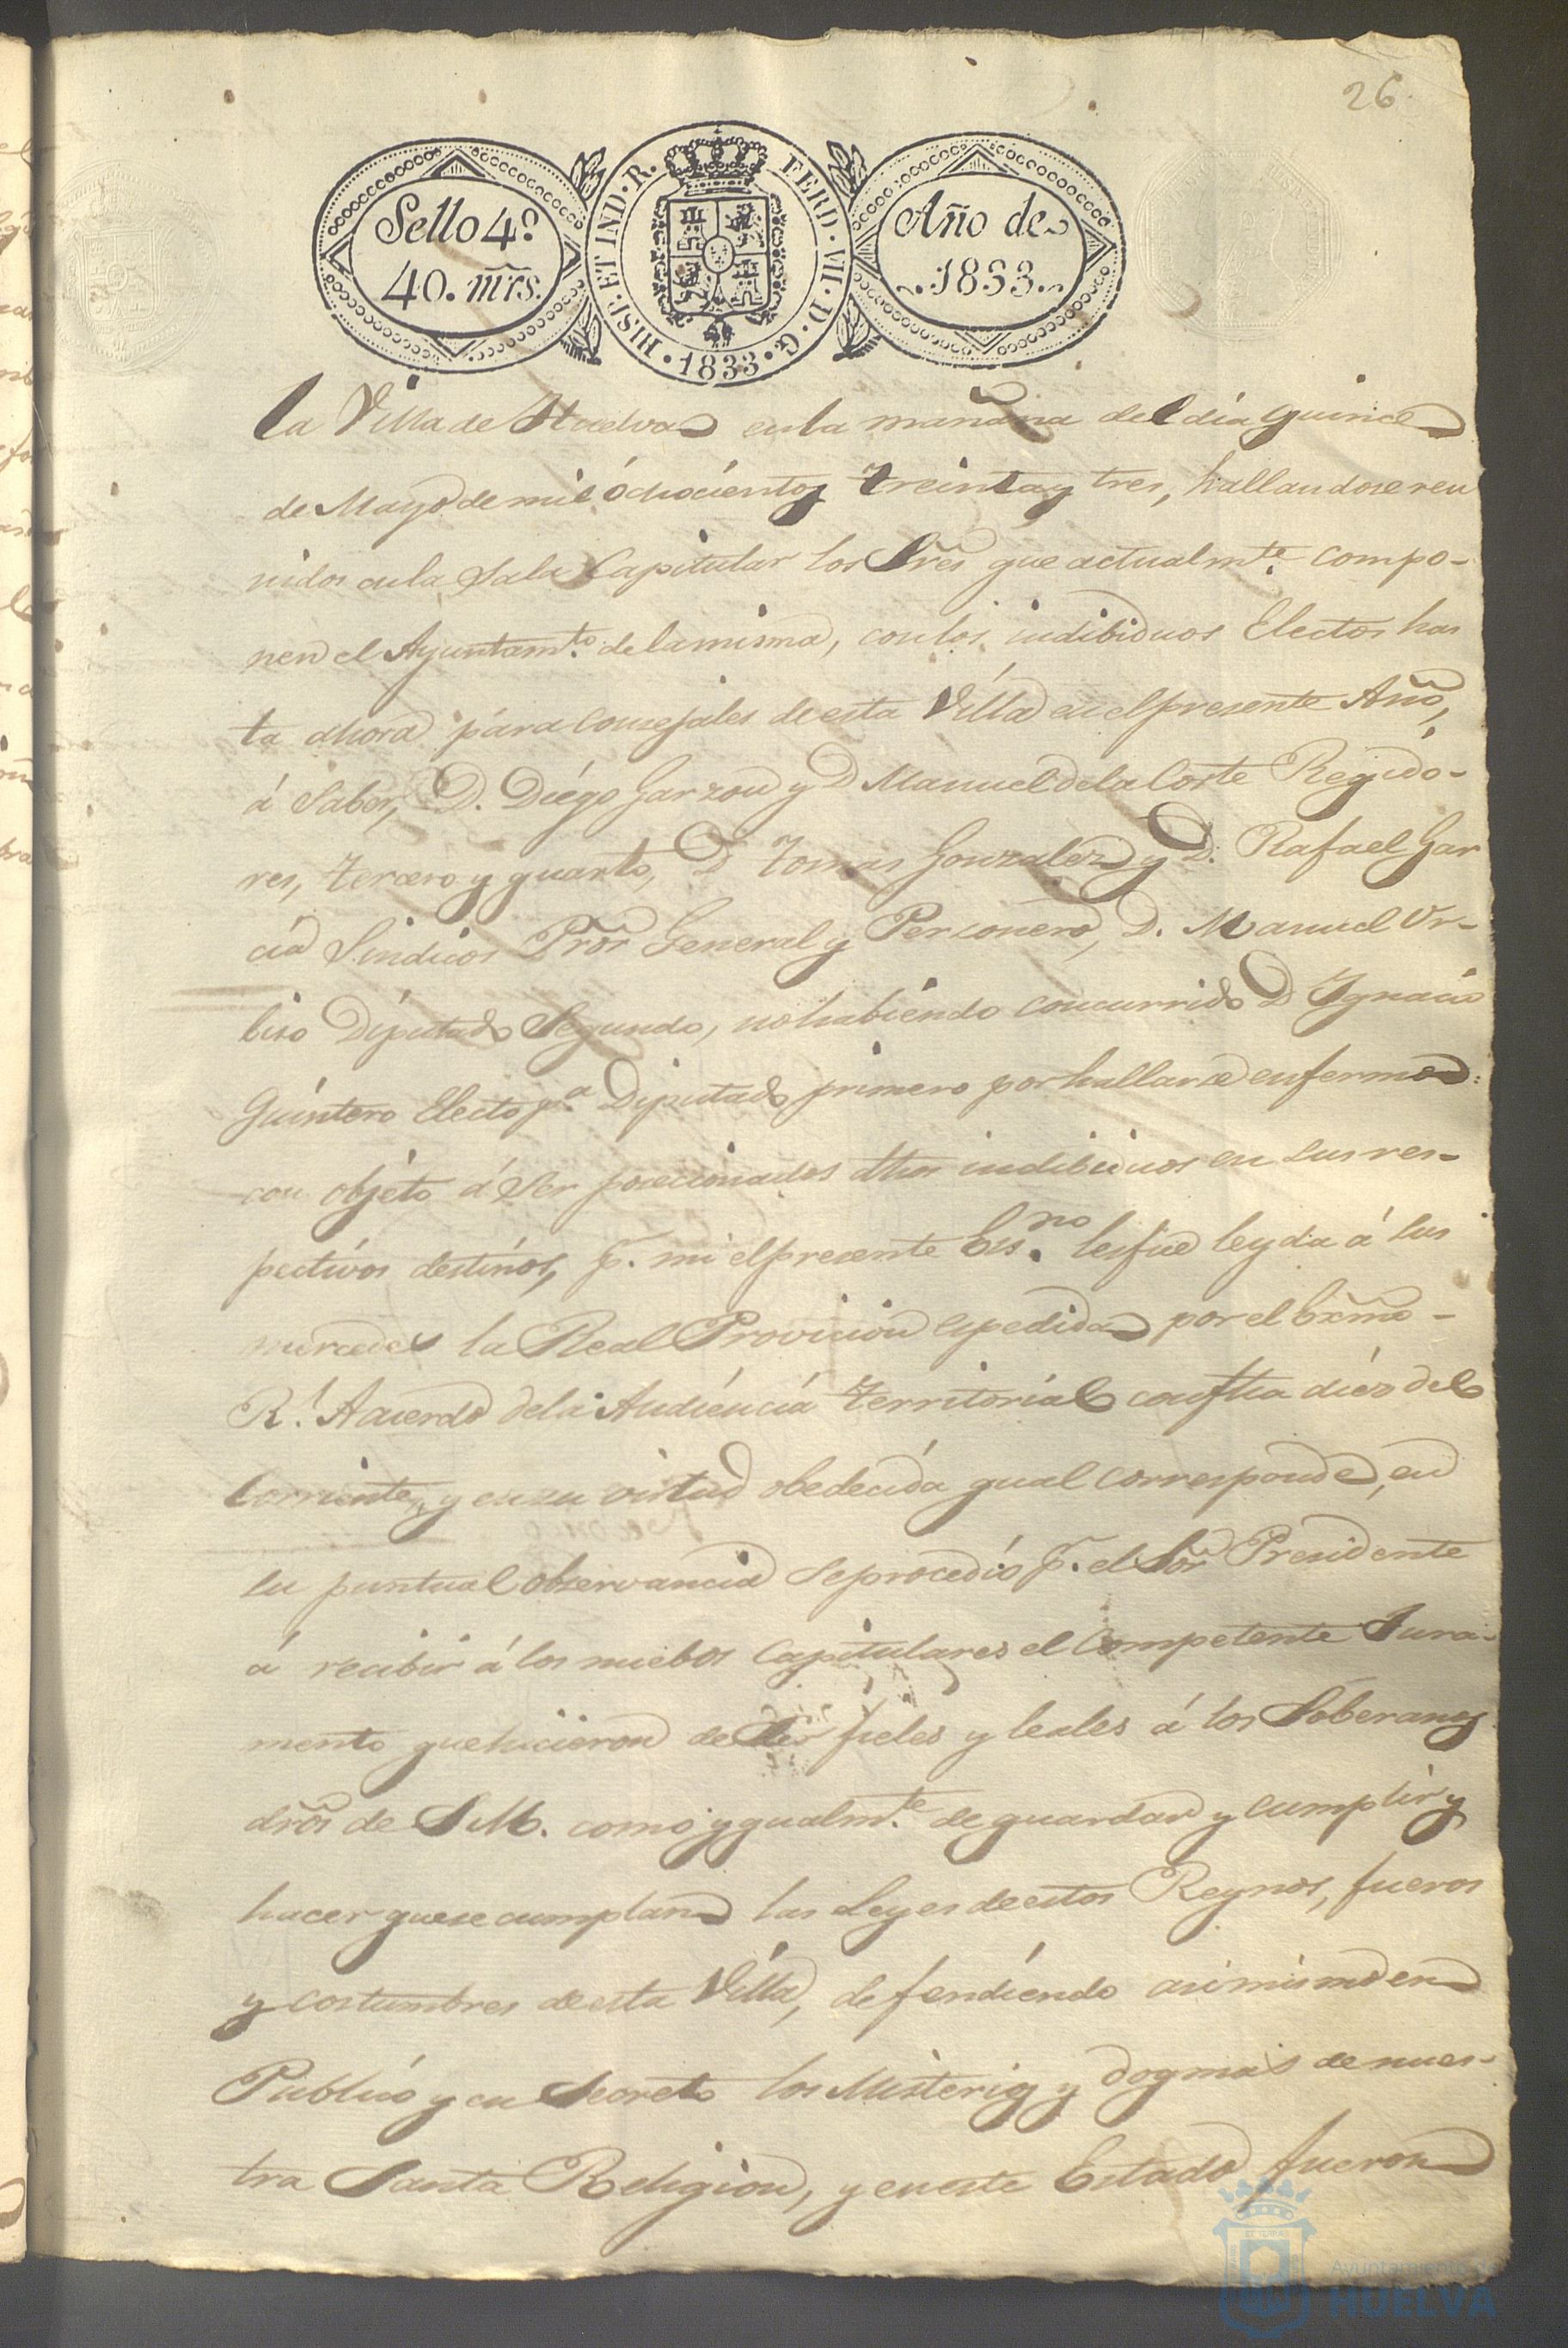 26.
Sello 4º
40. mrs.
HISP. ET IND. R. FERD. VII. D. G. 1833
Año de
1833.
la Villa de Huelva en la mañana del dia quince
de Mayo de mil óchocientos treinta y tres, hallandose reu
nidos en la Sala Capitular los Sres que actualmte. compo-
nen el Ayuntamto. de la misma, con los indibiduos Electos has
ta ahora para consejales de esta Villa en el presente Año,
á Saber, D. Diégo Garzon y D Manuel de la Corte Regido-
res, tercero y quarto, D Tomas Gonzalez y D. Rafael Gar
cia Sindicos Pror General y Personero, D. Manuel Ur-
biso Diputado Segundo, no habiendo concurrido D Ygnacio
Quintero Electo pa. Diputado primero por hallarse enfermo:
con objeto á ser posecionados dhos indibiduos en sus res-
pectivos destinos, p. mi el presente Essno. les fue leyda á sus
mercedes la Real Provicion espedida por el Exmo -
Rl. Acuerdo de la Audiencia territorial con fha diez del
Corriente, y en su virtud obedecida qual corresponde, en
su puntual observancia se procedió p. el Sor Presidente
á recibir á los nuebos Capitulares el competente Jura-
mento que hicieron de ser fieles y leales á los Soberanos
dros de S. M. como ygualmte. de guardar y cumplir y
hacer que se cumplan las Leyes de estos Reynos, fueros
y costumbres de esta Villa, defendiendo asi mismo en
Publico y en Secreto los Misterios y dogmas de nues-
tra Santa Religion, y en este Estado fueron
Ayuntamiento de
HUELVA